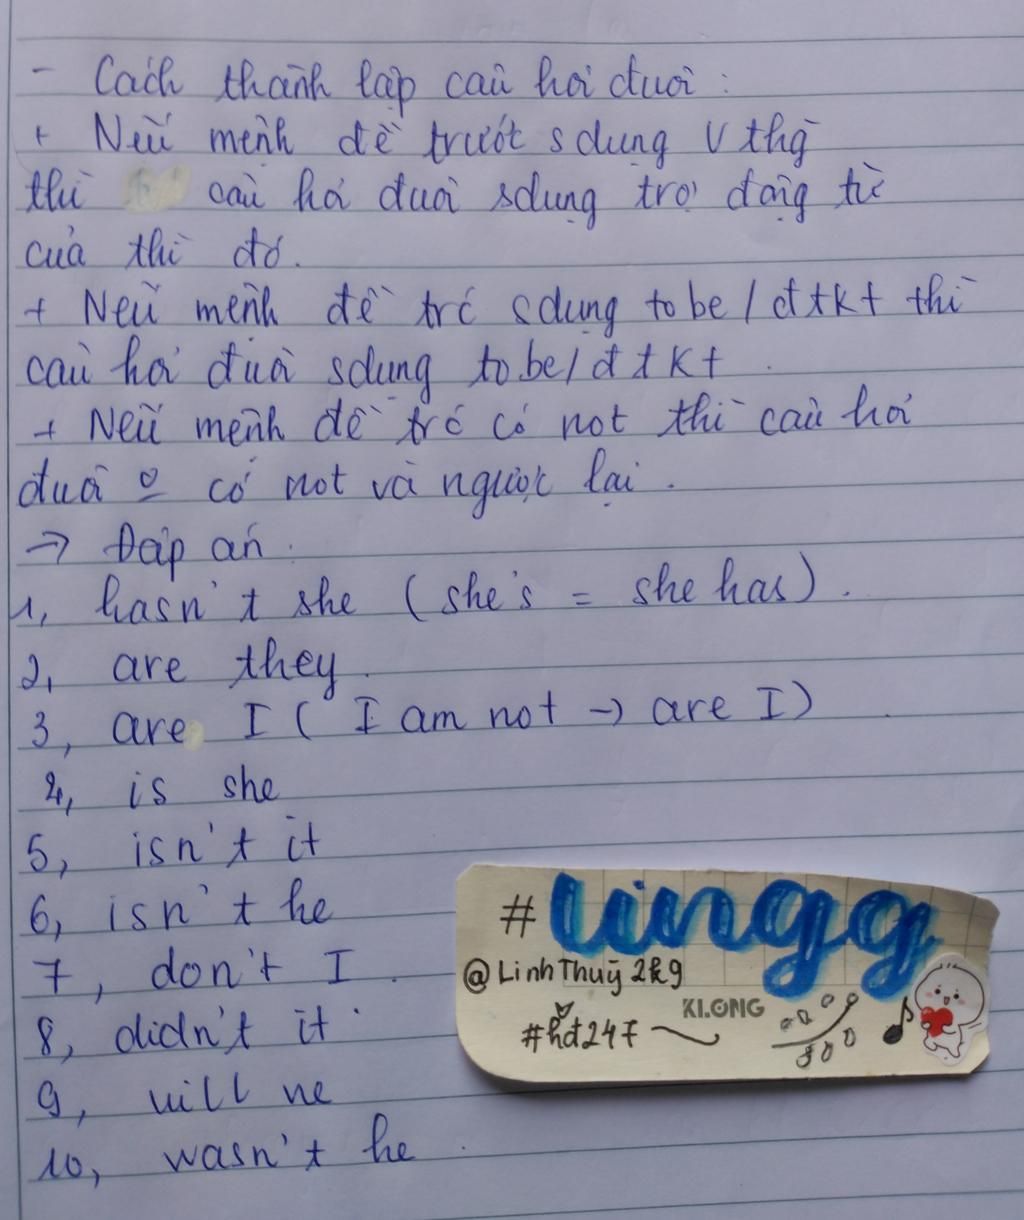 - Cách thành lập câu hỏi đuôi:
+ Nếu mệnh đề trước sdụng V thg
thì câu hỏi đuôi sdụng trợ động từ
của thì đó.
+ Nếu mệnh đề trc sdụng to be / đtkt thì
câu hỏi đuôi sdụng to be / đtkt.
+ Nếu mệnh đề trc có not thì câu hỏi
đuôi o có not và ngược lại.
→ Đáp án.
1, hasn't she (she's = she has).
2, are they.
3, are I ( I am not → are I)
4, is she
5, isn't it
6, isn't he
7, don't I.
8, didn't it.
9, will he
10, wasn't he.
#Lingg
@LinhThuỳ2k9
KLONG
#hđ247